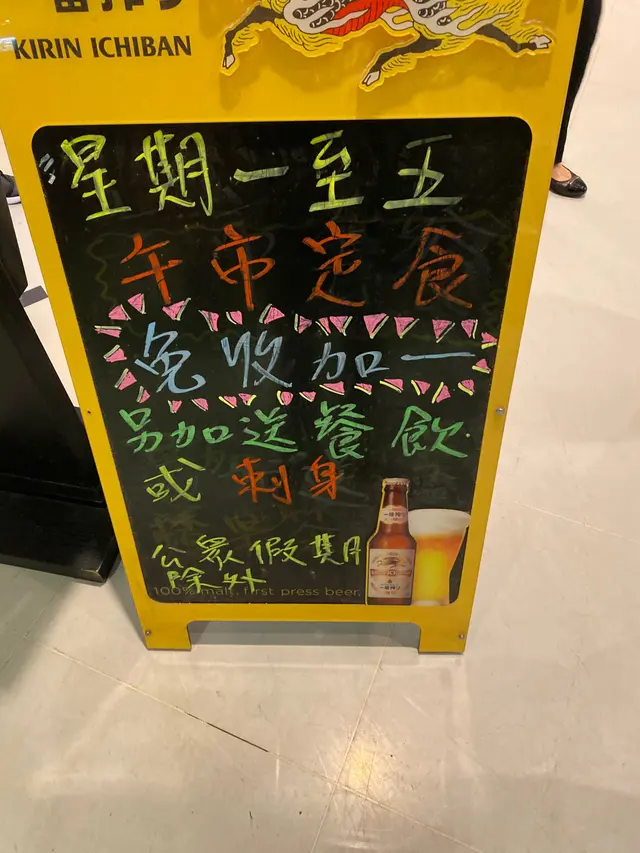 KIRIN ICHIBAN
星期一至五
午市定食
免收加一
另加送餐飲
或刺身
公眾假期
除外
100% malt, first press beer.